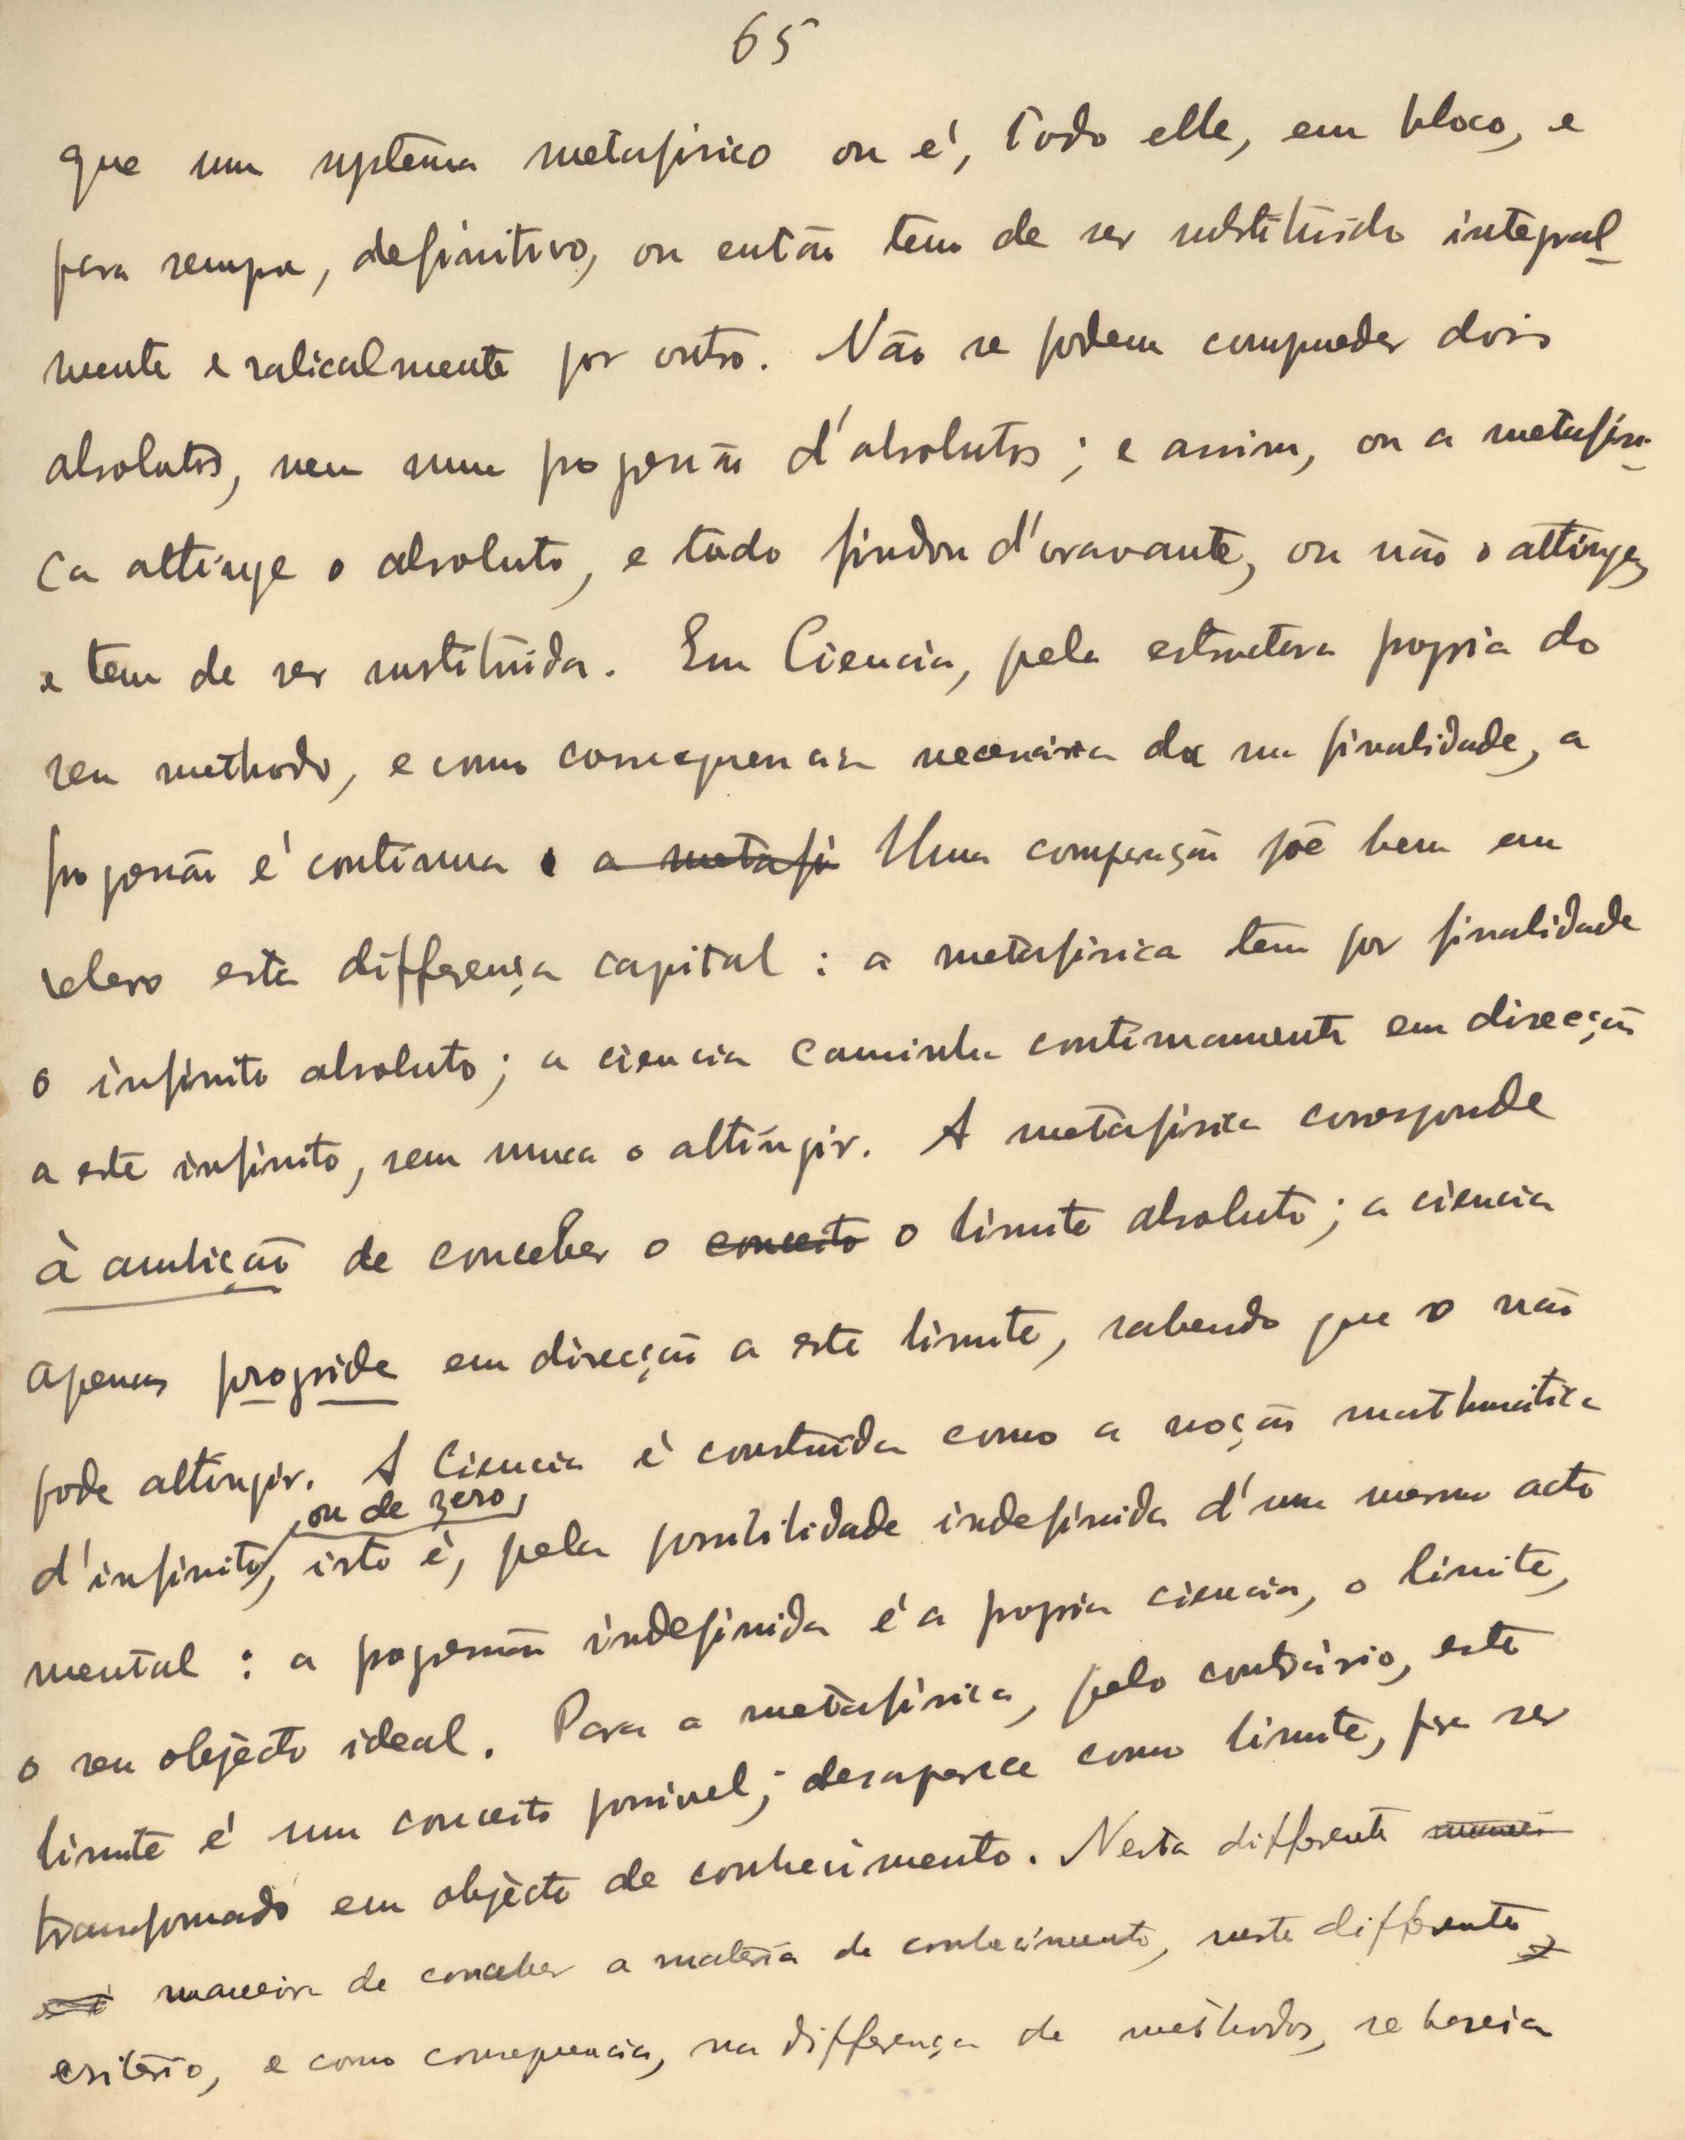 65
que um systema metafisico ou é, todo elle, em bloco, e
para sempre, definitivo, ou então tem de ser substituido integral-
mente e radicalmente por outro. Não se podem comprueder dois
absolutos, nem uma progressão d'absolutos; e assim, ou a metafisi-
ca attinge o absoluto, e tudo findou d'oravante, ou não o attinge,
e tem de ser substituida. Em Ciencia, pela estructura propria do
seu methodo, e como consequencia necessária da sua finalidade, a
progressão é continua. a metafi Uma comparação põe bem em
relevo esta differença capital: a metafisica tem por finalidade
o infinito absoluto; a ciencia caminha continuamente em direcção
a este infinito, sem nunca o attingir. A metafisica corresponde
à ambição de conceber o conceito o limite absoluto; a ciencia
apenas progride em direcção a este limite, sabendo que o não
pode attingir. A Ciencia é construida como a noção mathematica
ou de zero,
d'infinito, isto é, pela possibilidade indefinida d'um mesmo acto
mental: a progressão indefinida é a propria ciencia, o limite,
o seu objècto ideal. Para a metafisica, pelo contrário, este
limite é um conceito possivel; desaparece como limite, para ser
transformado em objècto de conhecimento. Nesta differente manei
maneira de conceber a materia do conhecimento, neste differente
critério, e como consequencia, na differença de methodos, se baseia